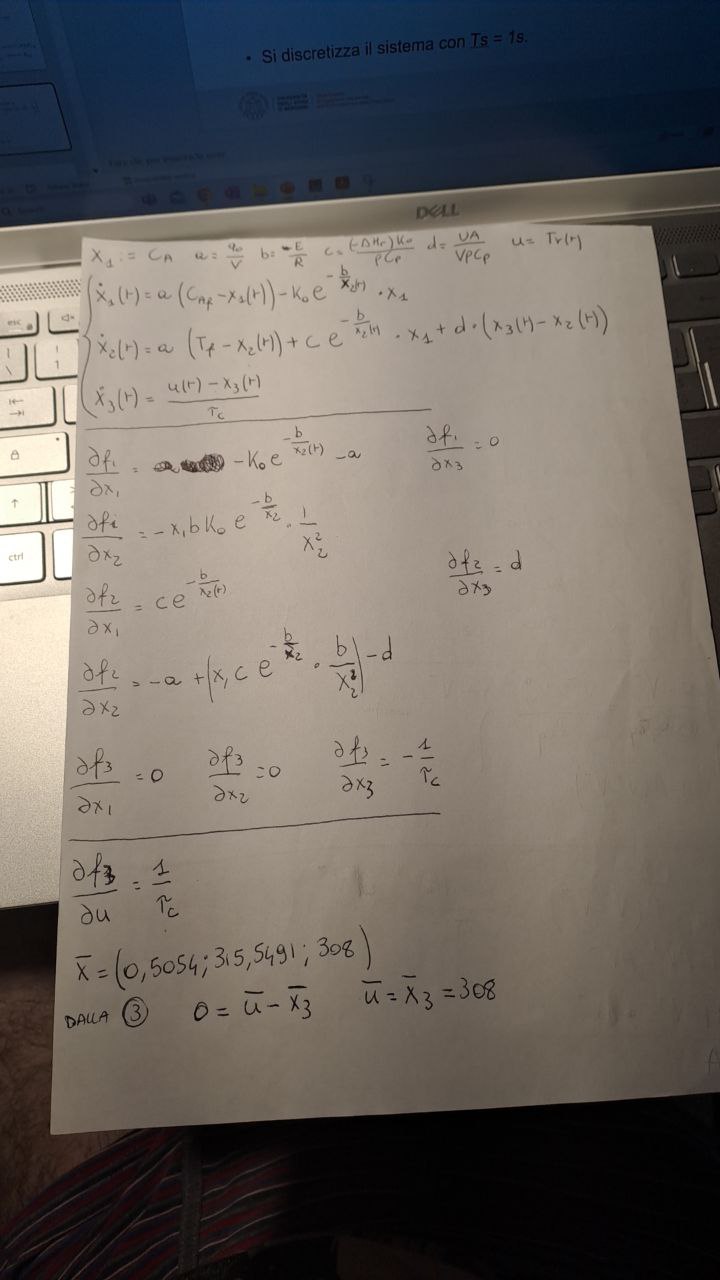 • Si discretizza il sistema con Ts = 1s.
DELL
esc
ctrl
x₁ := C_A a = q₀/V b = -E/R c = (-ΔHr)K₀/ρCp d = UA/VρCp u = Tr(t)
ẋ₁(t) = a (C_Af - x₁(t)) - K₀ e^(-b/x₂(t)) · x₁
ẋ₂(t) = a (T_f - x₂(t)) + c e^(-b/x₂(t)) · x₁ + d · (x₃(t) - x₂(t))
ẋ₃(t) = (u(t) - x₃(t))/τ_c
∂f₁/∂x₁ = -K₀ e^(-b/x₂(t)) - a ∂f₁/∂x₃ = 0
∂f₁/∂x₂ = - x₁ b K₀ e^(-b/x₂) · 1/x₂²
∂f₂/∂x₁ = c e^(-b/x₂(t)) ∂f₂/∂x₃ = d
∂f₂/∂x₂ = -a + (x₁ c e^(-b/x₂) · b/x₂²) - d
∂f₃/∂x₁ = 0 ∂f₃/∂x₂ = 0 ∂f₃/∂x₃ = - 1/τ_c
∂f₃/∂u = 1/τ_c
x̄ = (0,5054; 315,5491; 308)
DALLA ③ 0 = ū - x̄₃ ū = x̄₃ = 308